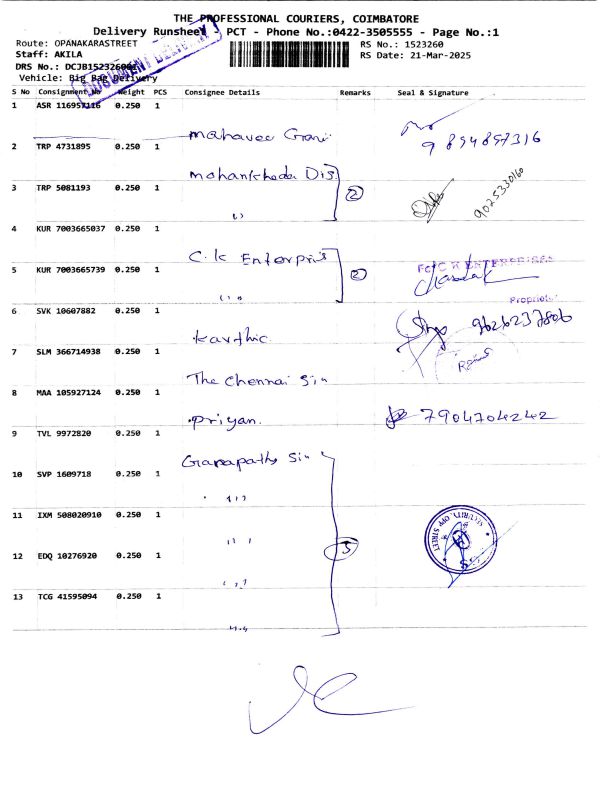 THE PROFESSIONAL COURIERS, COIMBATORE
Delivery Runsheet - PCT - Phone No.:0422-3505555 - Page No.:1
Route: OPANAKARASTREET
RS No.: 1523260
Staff: AKILA
RS Date: 21-Mar-2025
DRS No.: DCJB1523260
DOCUMENT DELIVERY
Vehicle: Big Bag Delivery
S No Consignment No Weight PCS Consignee Details Remarks Seal & Signature
1 ASR 116957116 0.250 1
9894897316
2 TRP 4731895 0.250 1
Mohankheda Dis
3 TRP 5081193 0.250 1
2
9025330160
4 KUR 7003665037 0.250 1
C.K Enterpris
5 KUR 7003665739 0.250 1
2
For C K ENTERPRISES
Proprietor
6 SVK 10607882 0.250 1
Karthic
9626237806
7 SLM 366714938 0.250 1
The Chennai Sin
8 MAA 105927124 0.250 1
Priyan.
7904704242
9 TVL 9972820 0.250 1
Ganapathy Sin
10 SVP 1609718 0.250 1
11 IXM 508020910 0.250 1
SECURITY, OPP STREET
12 EDQ 10276920 0.250 1
13 TCG 41595094 0.250 1